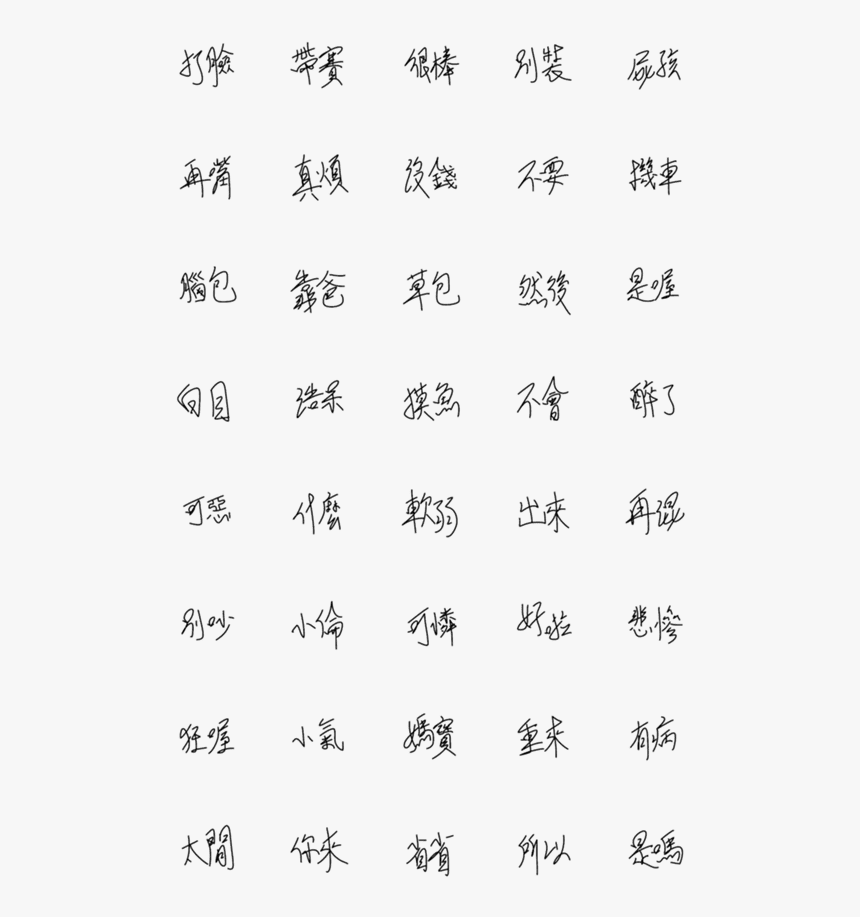 打臉 帶賽 很棒 別裝 屁孩
再嘴 真煩 沒錢 不要 機車
腦包 靠爸 草包 然後 是喔
白目 耍呆 摸魚 不會 醉了
可惡 什麼 軟弱 出來 再混
別吵 小倫 可憐 好啦 悲慘
狂喔 小氣 媽寶 重來 有病
太閒 你來 省省 所以 是嗎